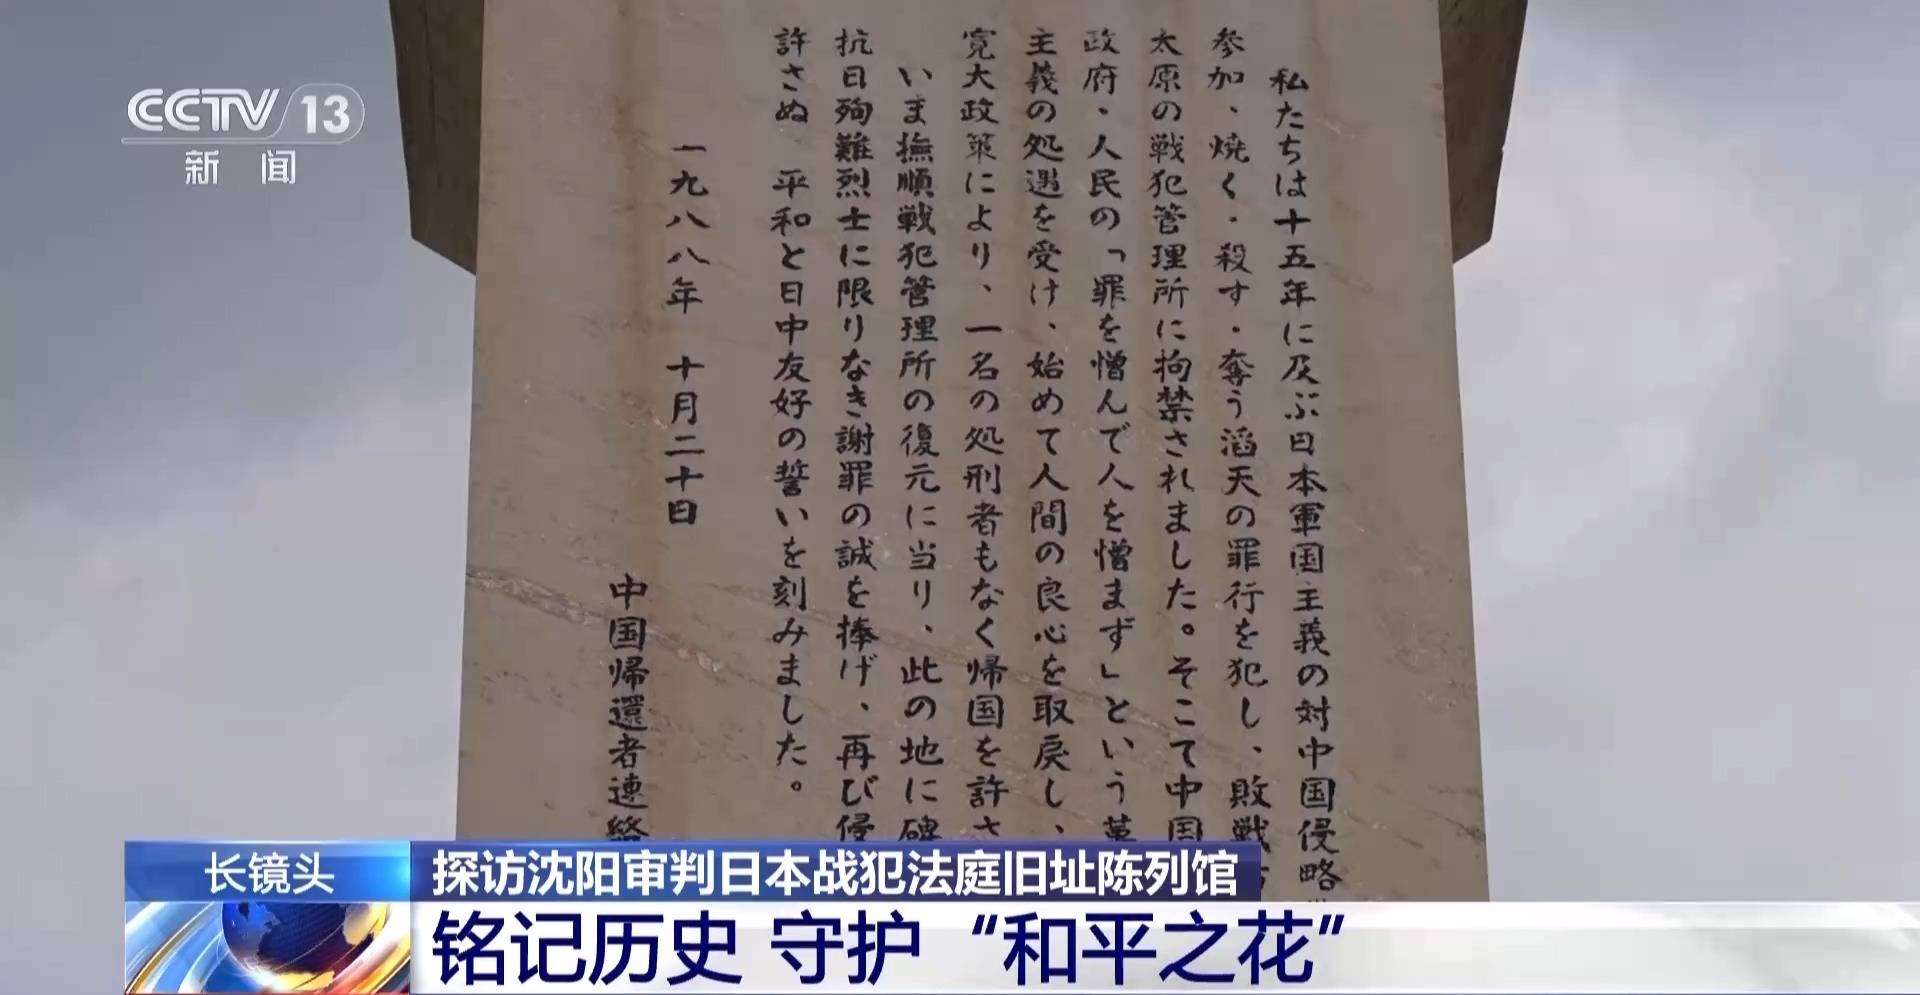 CCTV 13
新闻
私たちは十五年に及ぶ日本軍国主義の対中国侵略
参加、焼く・殺す・奪う滔天の罪行を犯し、敗戦
太原の戦犯管理所に拘禁されました。そこて中国
政府・人民の「罪を憎んで人を憎まず」という
主義の処遇を受け、始めて人間の良心を取戻し、
寛大政策により、一名の処刑者もなく帰国を許さ
いま撫順戦犯管理所の復元に当り、此の地に碑
抗日殉難烈士に限りなき謝罪の誠を捧げ、再び侵
許さぬ 平和と日中友好の誓いを刻みました。
一九八八年 十月二十日
中国帰還者連絡
长镜头
探访沈阳审判日本战犯法庭旧址陈列馆
铭记历史 守护“和平之花”